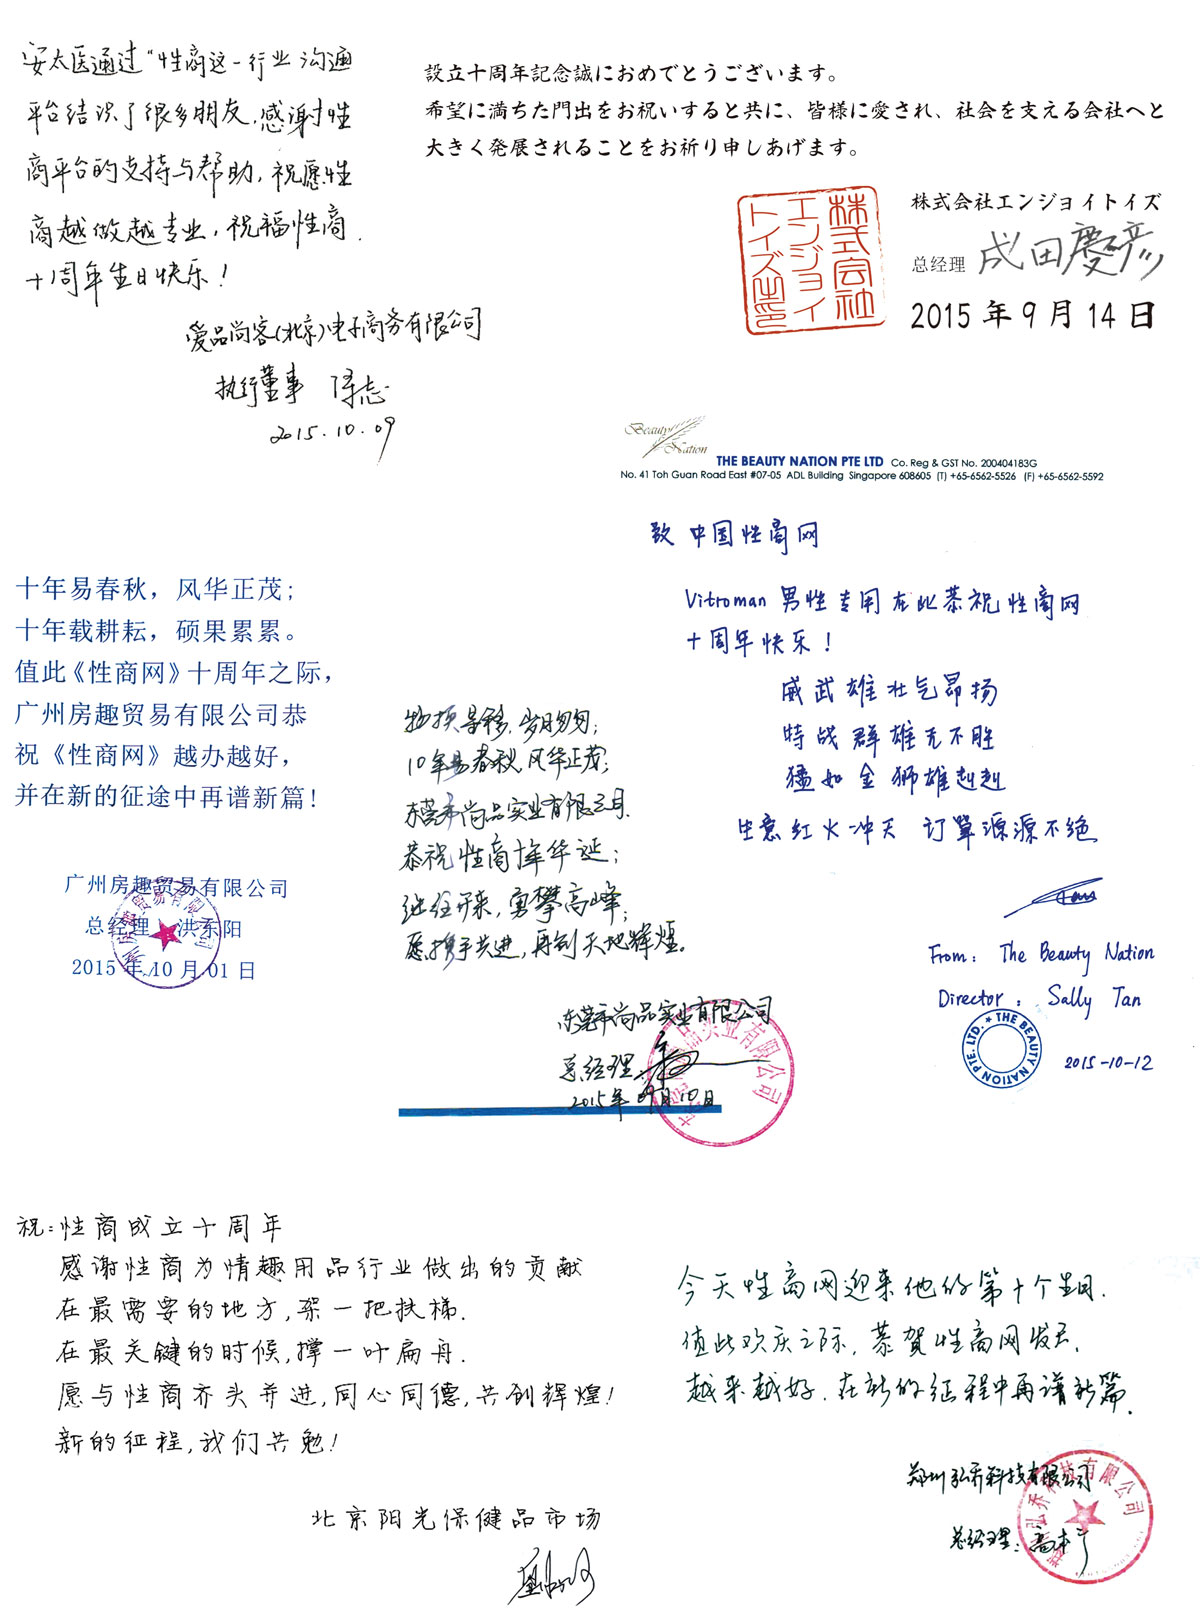 安太医通过“性商这一行业沟通
平台结识了很多朋友,感谢性
商平台的支持与帮助,祝愿性
商越做越专业,祝福性商
十周年生日快乐!
爱品尚客(北京)电子商务有限公司
执行董事
2015.10.09
設立十周年記念誠におめでとうございます。
希望に満ちた門出をお祝いすると共に、皆様に愛され、社会を支える会社へと
大きく発展されることをお祈り申しあげます。
株式会社エンジョイトイズ
总经理 成田慶彦
2015 年 9 月 14 日
株式会社
エンジョイ
トイズ
Beauty
Nation
THE BEAUTY NATION PTE LTD Co. Reg & GST No. 200404183G
No. 41 Toh Guan Road East #07-05 ADL Building Singapore 608605 (T) +65-6562-5526 (F) +65-6562-5592
致 中国性商网
Vitroman 男性专用在此恭祝性商网
十周年快乐!
威武雄壮气昂扬
特战群雄无不胜
猛如金狮雄赳赳
生意红火冲天 订单源源不绝
From: The Beauty Nation
Director: Sally Tan
THE BEAUTY NATION PTE. LTD.
2015-10-12
十年易春秋，风华正茂;
十年载耕耘，硕果累累。
值此《性商网》十周年之际，
广州房趣贸易有限公司恭
祝《性商网》越办越好，
并在新的征途中再谱新篇!
广州房趣贸易有限公司
总经理 洪东阳
2015 年 10 月 01 日
物换星移,岁月匆匆;
10年易春秋,风华正茂;
东莞市尚品实业有限公司
恭祝性商十年华诞;
继往开来,勇攀高峰;
愿携手共进,再创天地辉煌。
东莞市尚品实业有限公司
总经理
2015年09月10日
祝:性商成立十周年
感谢性商为情趣用品行业做出的贡献
在最需要的地方,架一把扶梯.
在最关键的时候,撑一叶扁舟.
愿与性商齐头并进,同心同德,共创辉煌!
新的征程,我们共勉!
北京阳光保健品市场
今天性商网迎来他的第十个生日.
值此欢庆之际,恭贺性商网发展
越来越好.在新的征程中再谱新篇.
郑州弘乔科技有限公司
总经理: